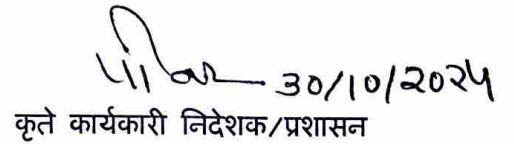 30/10/2024
कृते कार्यकारी निदेशक/प्रशासन